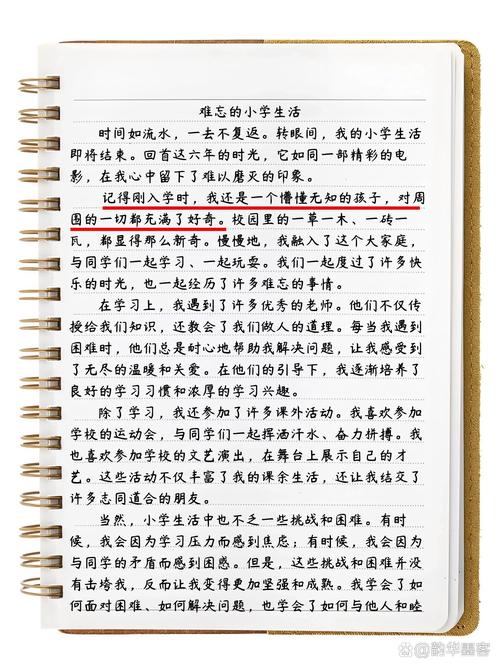 难忘的小学生活
时间如流水，一去不复返。转眼间，我的小学生活
即将结束。回首这六年的时光，它如同一部精彩的电
影，在我心中留下了难以磨灭的印象。
记得刚入学时，我还是一个懵懂无知的孩子，对周
围的一切都充满了好奇。校园里的一草一木、一砖一
瓦，都显得那么新奇。慢慢地，我融入了这个大家庭，
与同学们一起学习、一起玩耍。我们一起度过了许多快
乐的时光，也一起经历了许多难忘的事情。
在学习上，我遇到了许多优秀的老师。他们不仅传
授给我们知识，还教会了我们做人的道理。每当我遇到
困难时，他们总是耐心地帮助我解决问题，让我感受到
了无尽的温暖和关爱。在他们的引导下，我逐渐培养了
良好的学习习惯和浓厚的学习兴趣。
除了学习，我还参加了许多课外活动。我喜欢参加
学校的运动会，与同学们一起挥洒汗水、奋力拼搏。我
也喜欢参加学校的文艺演出，在舞台上展示自己的才
艺。这些活动不仅丰富了我的课余生活，还让我结交了
许多志同道合的朋友。
当然，小学生活中也不乏一些挑战和困难。有时
候，我会因为学习压力而感到焦虑；有时候，我会因为
与同学的矛盾而感到困惑。但是，这些挑战和困难并没
有击垮我，反而让我变得更加坚强和成熟。我学会了如
何面对困难、如何解决问题，也学会了如何与他人和睦
@韵华墨客